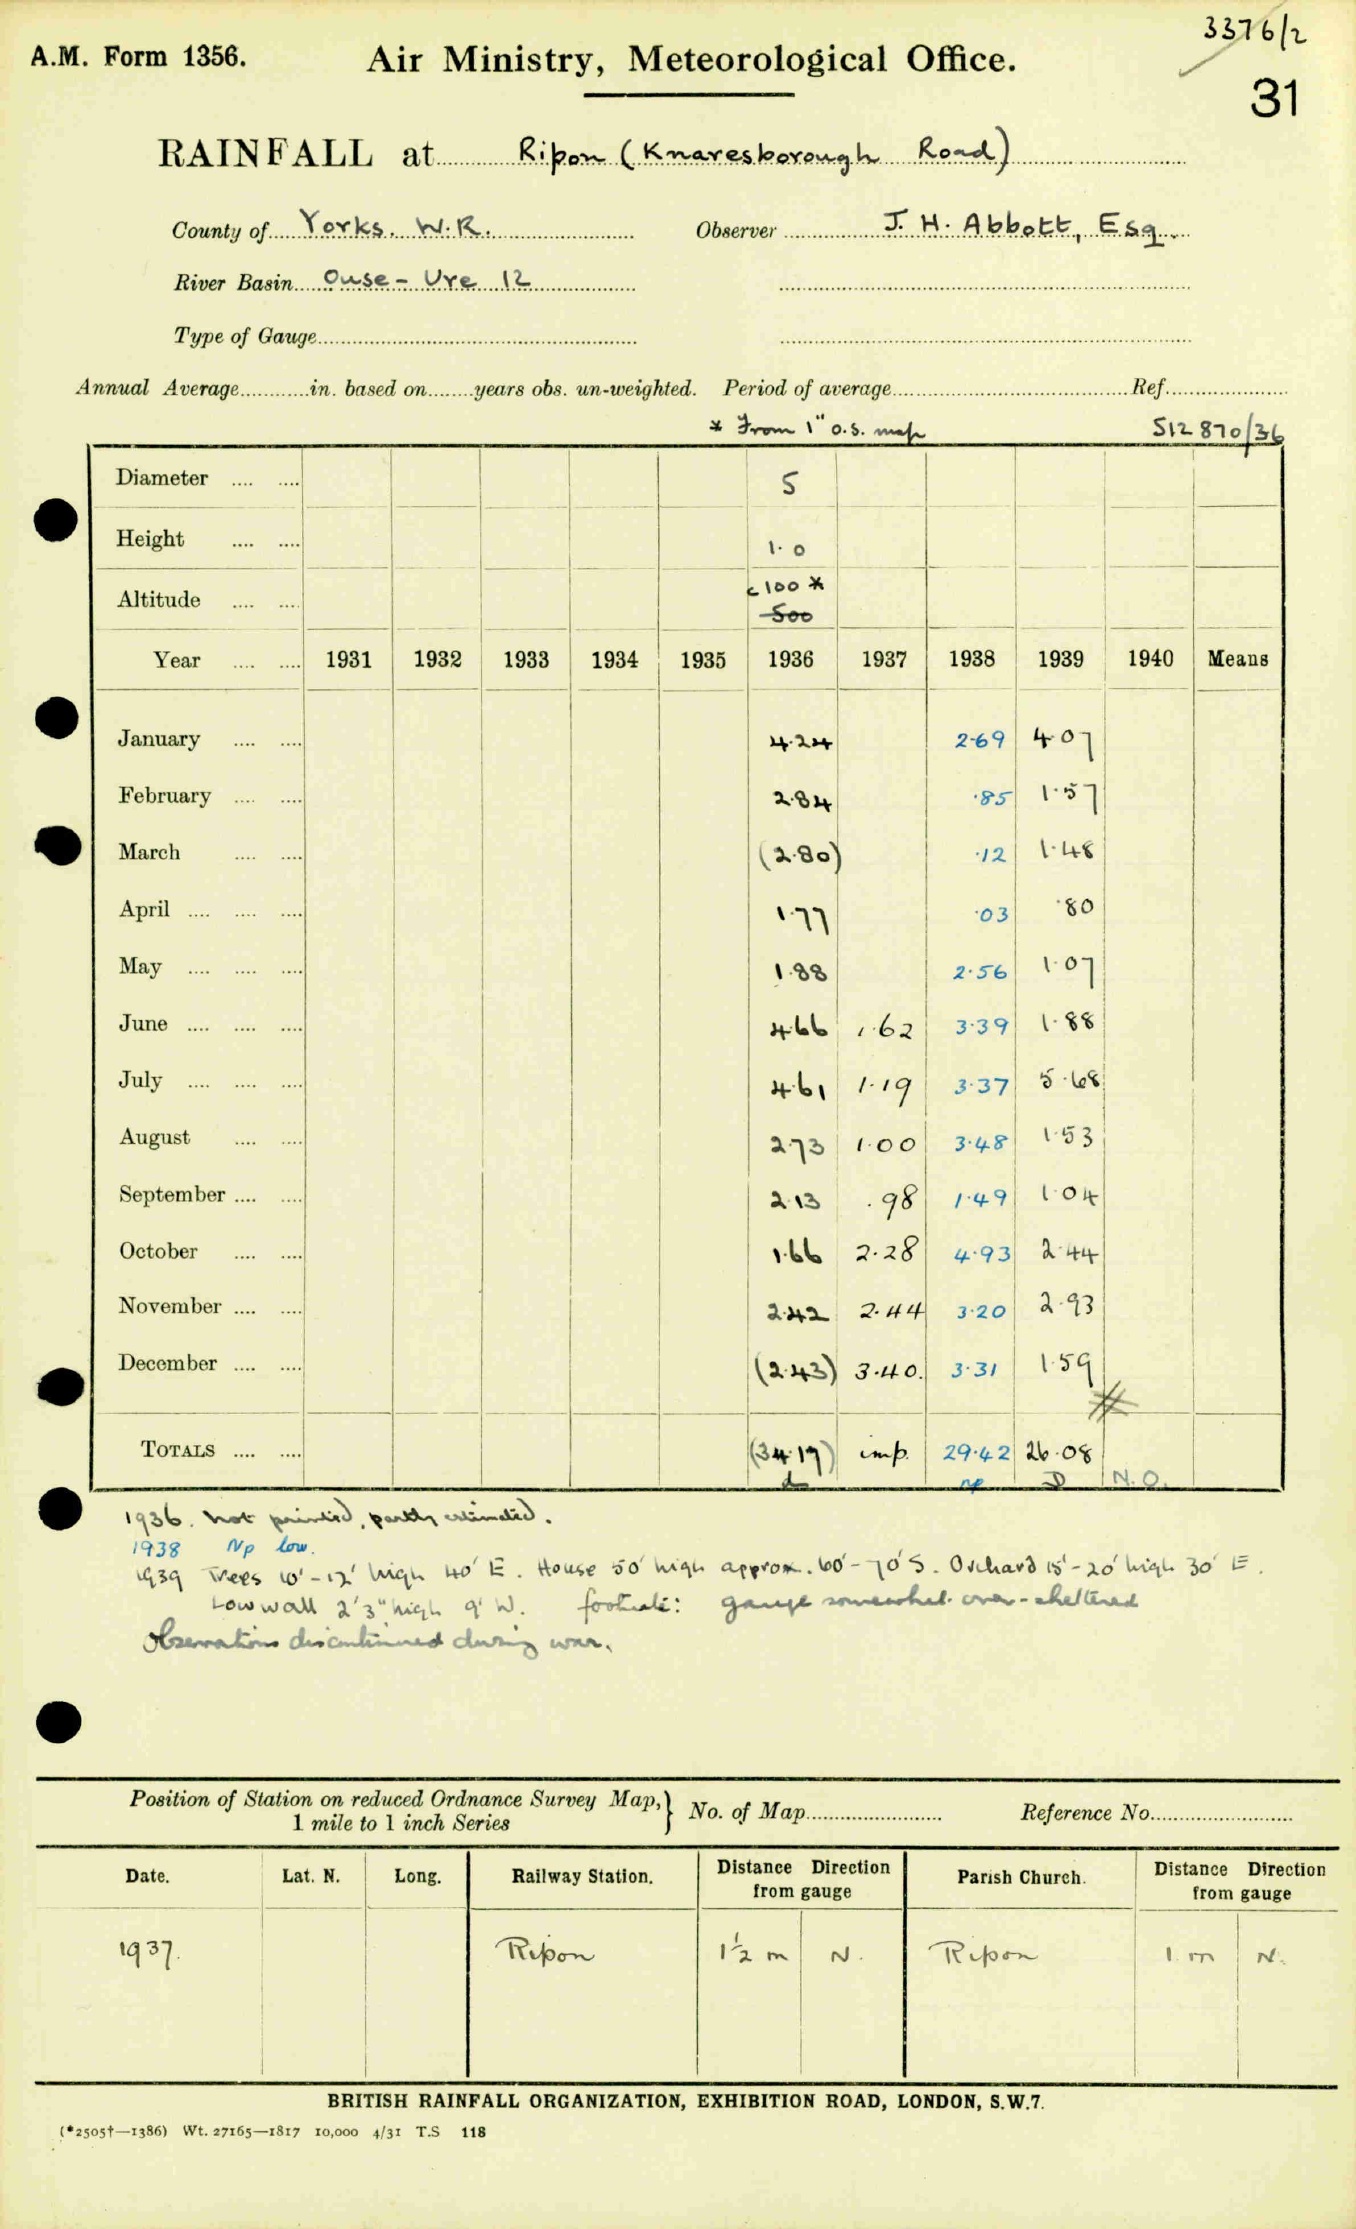 3376/2
A.M. Form 1356. Air Ministry, Meteorological Office.
31
RAINFALL at Ripon (Knaresborough Road)
County of Yorks. W.R. Observer J. H. Abbott, Esq.
River Basin Ouse - Ure 12
Type of Gauge
Annual Average in. based on years obs. un-weighted. Period of average Ref.
* From 1" O.S. map S12 870/36
Diameter 5
Height 1.0
Altitude c100 *
500
Year 1931 1932 1933 1934 1935 1936 1937 1938 1939 1940 Means
January 4.24 2.69 4.07
February 2.84 .85 1.57
March (2.80) .12 1.48
April 1.77 .03 .80
May 1.88 2.56 1.07
June 4.66 1.62 3.39 1.88
July 4.61 1.19 3.37 5.68
August 2.73 1.00 3.48 1.53
September 2.13 .98 1.49 1.04
October 1.66 2.28 4.93 2.44
November 2.42 2.44 3.20 2.93
December (2.43) 3.40. 3.31 1.59
TOTALS (34.17) imp. 29.42 26.08
d np D N.O.
1936. Not printed, partly estimated.
1938 Np low.
1939 Trees 10'-12' high 40' E. House 50' high approx. 60'-70' S. Orchard 15'-20' high 30' E.
Low wall 2'3" high 9' W. footnote: gauge somewhat over-sheltered
Observations discontinued during war.
Position of Station on reduced Ordnance Survey Map, } No. of Map Reference No.
1 mile to 1 inch Series
Date. Lat. N. Long. Railway Station. Distance Direction from gauge Parish Church. Distance Direction from gauge
1937. Ripon 1½ m N. Ripon 1 m N.
BRITISH RAINFALL ORGANIZATION, EXHIBITION ROAD, LONDON, S.W.7.
(*2505†—1386) Wt. 27165—1817 10,000 4/31 T.S 118